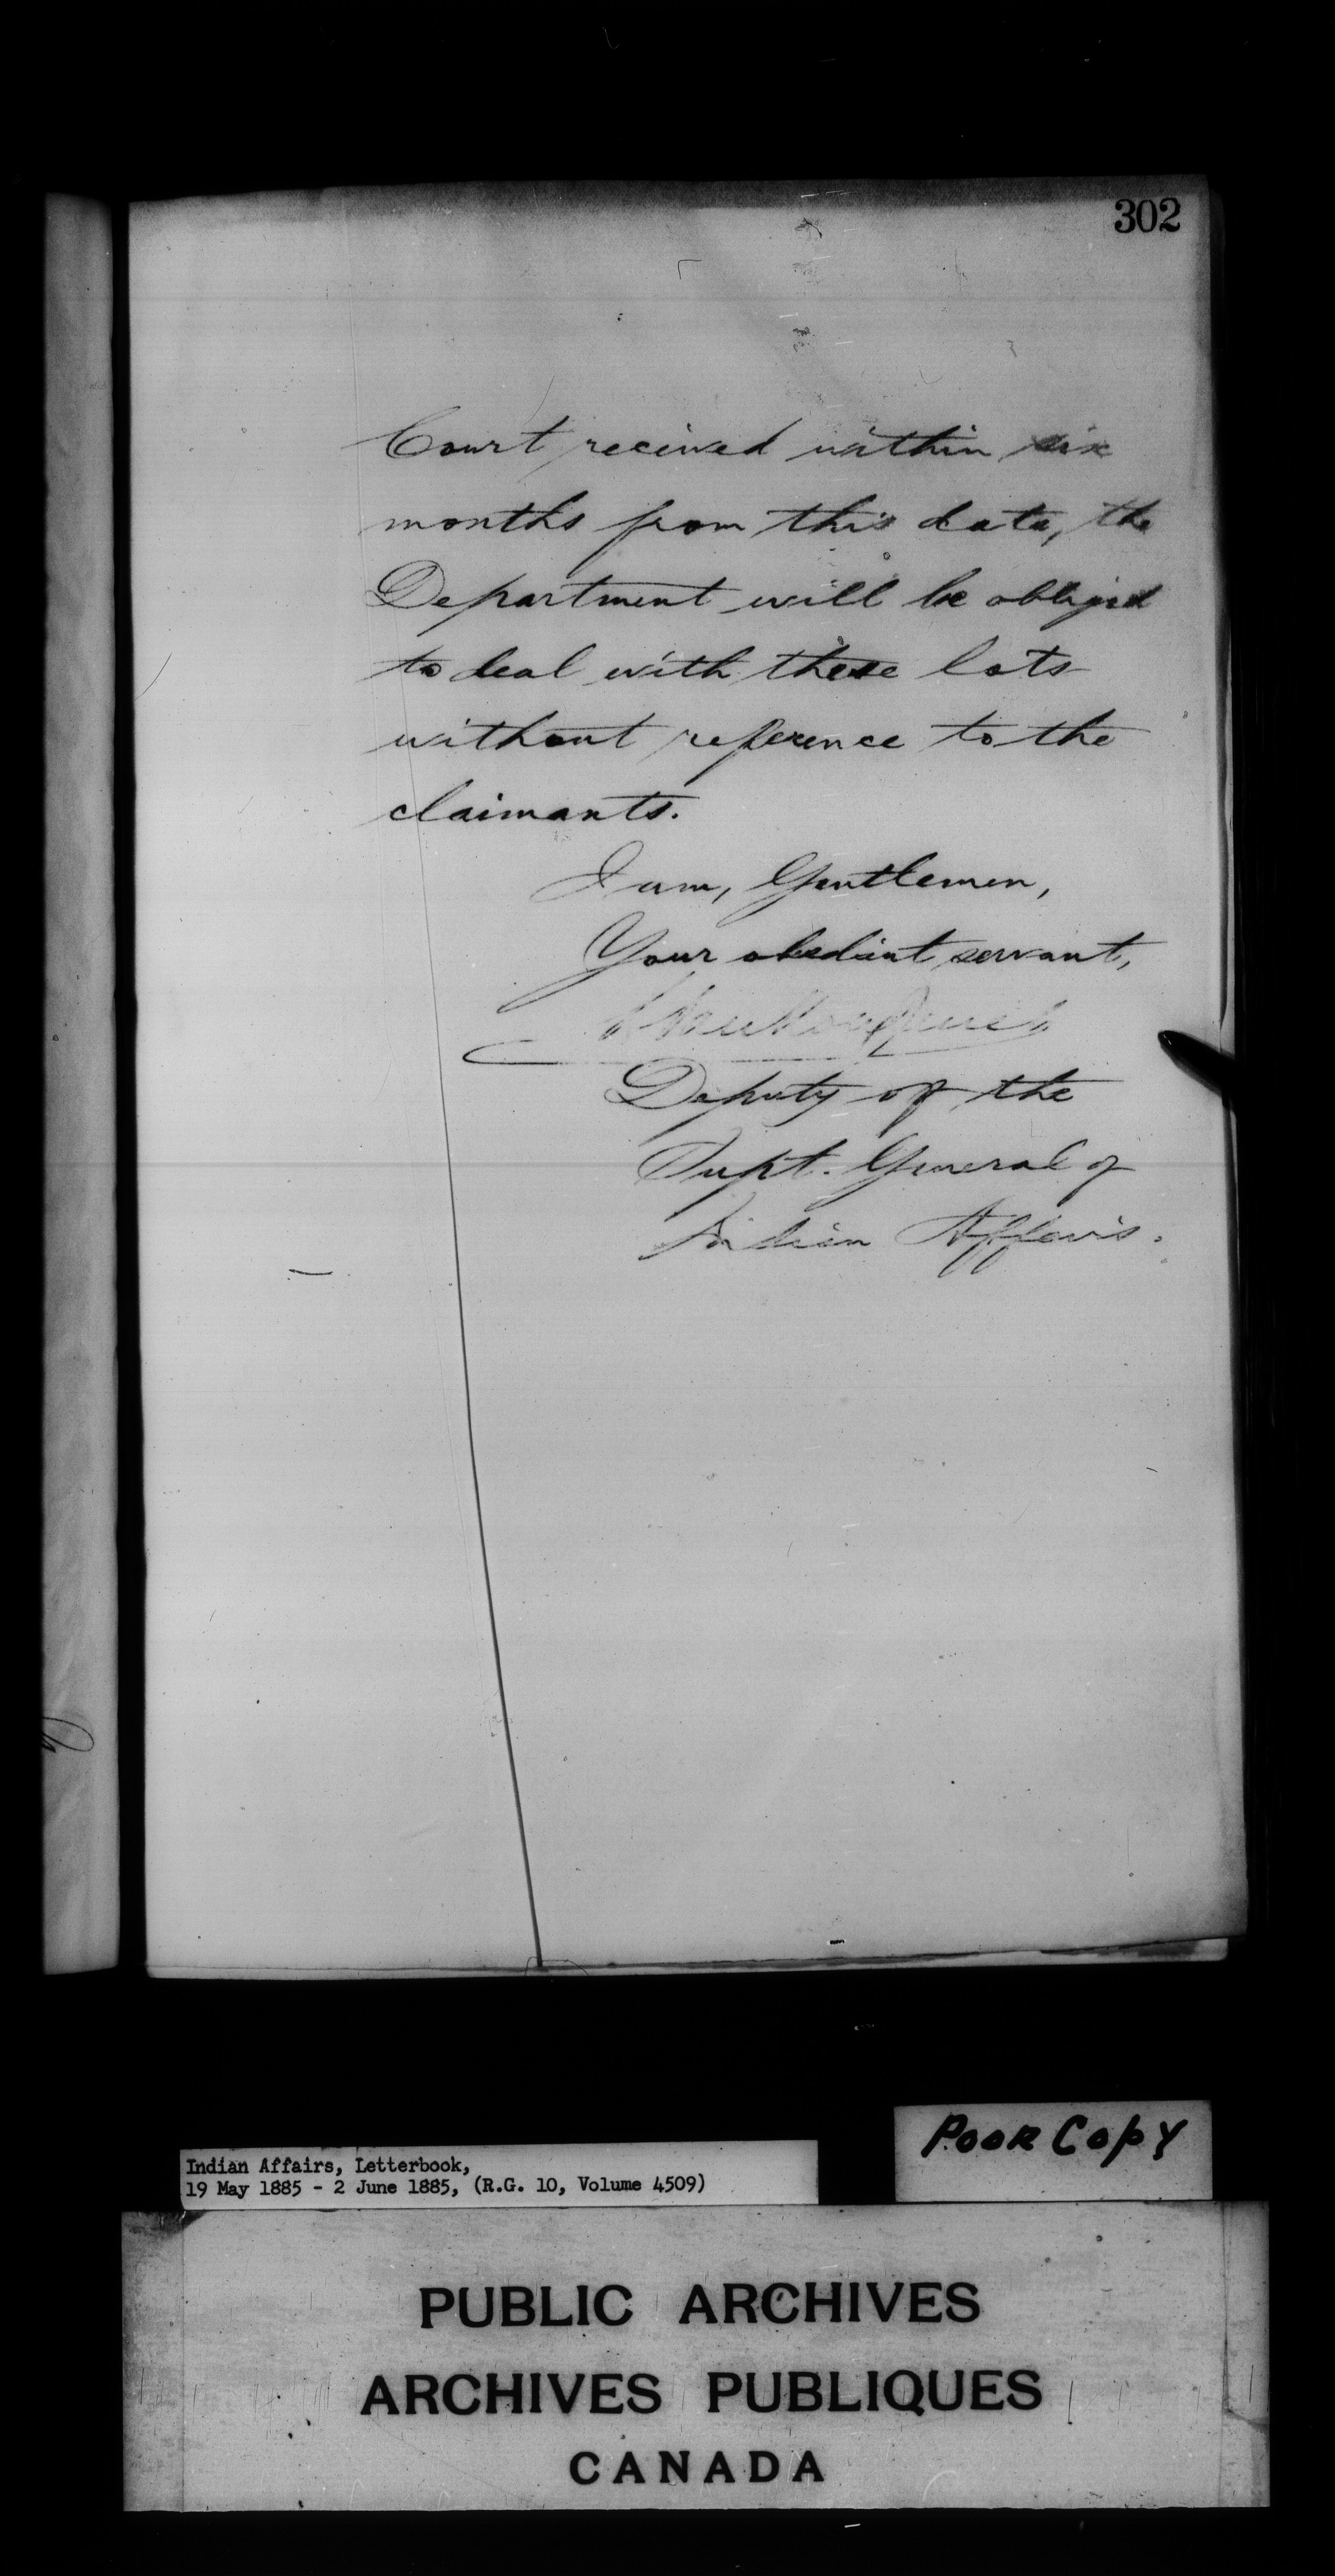 302
Court received within six
months from this date, the
Department will be obliged
to deal with these lots
without reference to the
claimants.
I am, Gentlemen,
Your obedient servant,
Deputy of the
Supt. General of
Indian Affairs.
Poor Copy
Indian Affairs, Letterbook,
19 May 1885 - 2 June 1885, (R.G. 10, Volume 4509)
PUBLIC ARCHIVES
ARCHIVES PUBLIQUES
CANADA